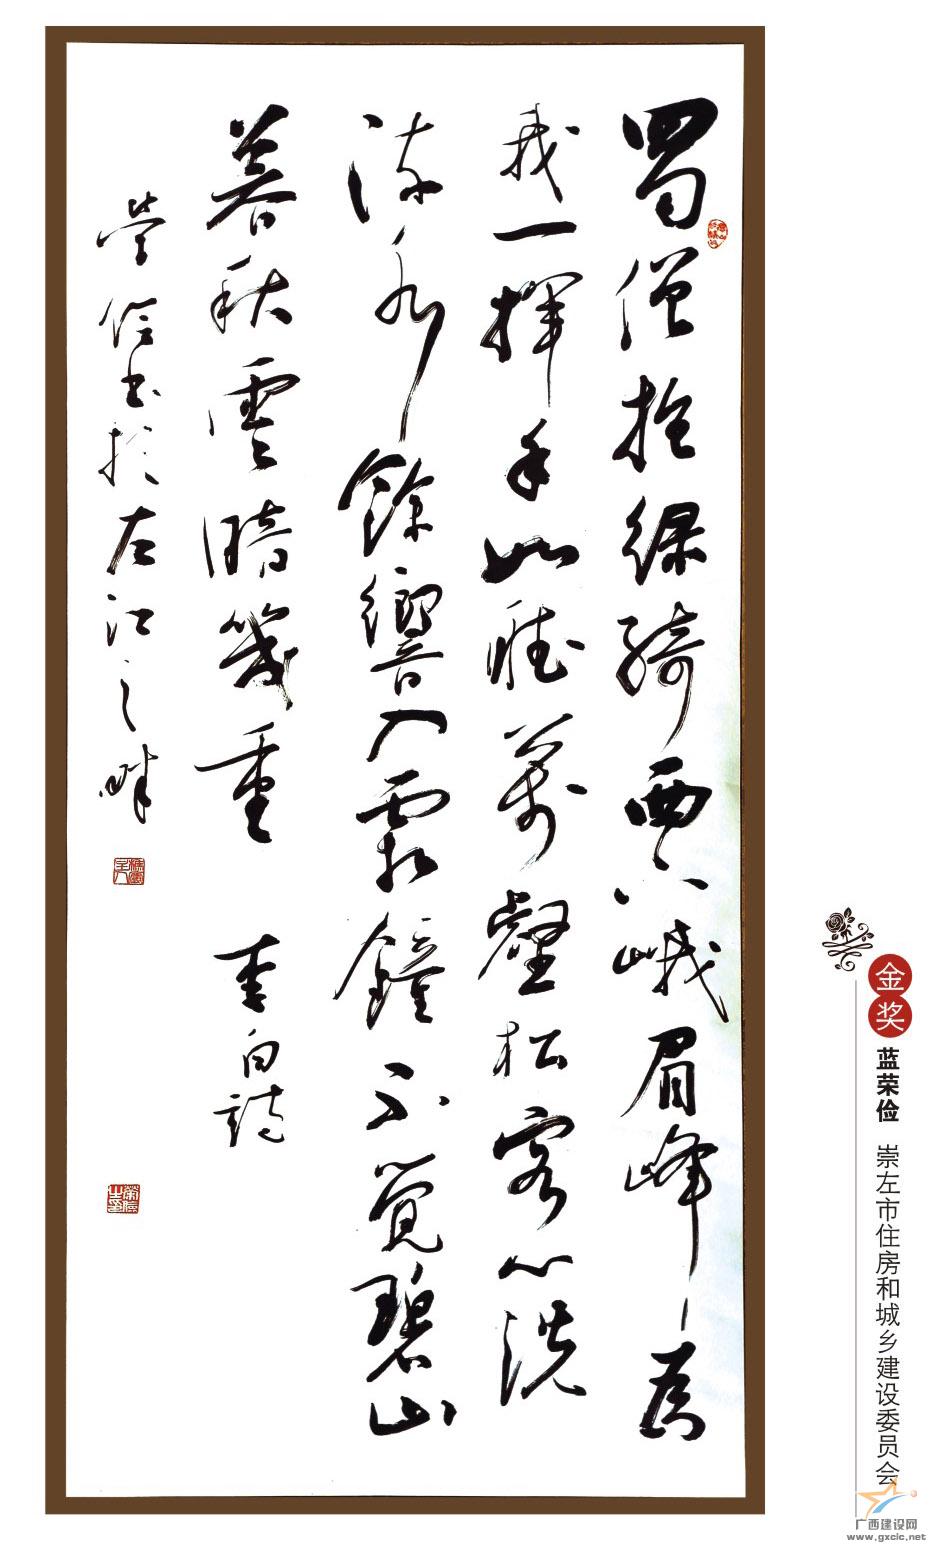 蜀僧抱綠綺西下峨眉峰為
我一揮手如聽萬壑松客心洗
流水餘響入霜鐘不覺碧山
暮秋雲暗幾重 李白詩
榮儉書於左江之畔
金奖 蓝荣俭 崇左市住房和城乡建设委员会
广西建设网
www.gxcic.net